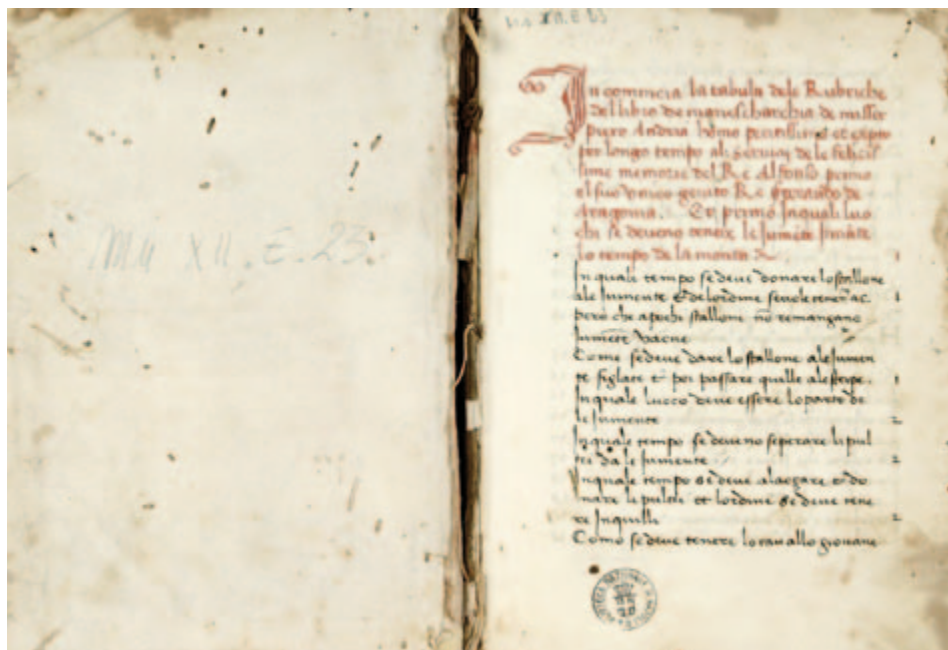 Ms XII. E. 23.
Ms XII. E 23
In commicia la tabula dele Rubriche
del libro de manischarchia de misser
piero Andria homo peritissimo et experto
per longo tempo ali servicij dele felicis
sime memorie del Re Alfonso primo
el suo unico genito Re ferrando de
Aragonia. Et primo In quali luo
chi se deveno tenere le Jumente
lo tempo de la monta 1
In quale tempo se deve donare lo stallone
ale Jumente & de lordine se vole tenere ac 1
però che apochi stallone nō remangano
Jumēte vacue
Come se deve dare lo stallone ale Jumen
te figlate et poi passare quille ale sterpe. 1
In quale luoco deve essere lo parto de
le Jumente 2
In quale tempo se deveno seperare li pul
tri da le Jumente 2
In quale tempo se deve alaczare & do
mare li pultri et lordine se deve tene
re In quilli 2
Como se deve tenere lo cavallo giovane
BIBLIOTECA NAZIONALE